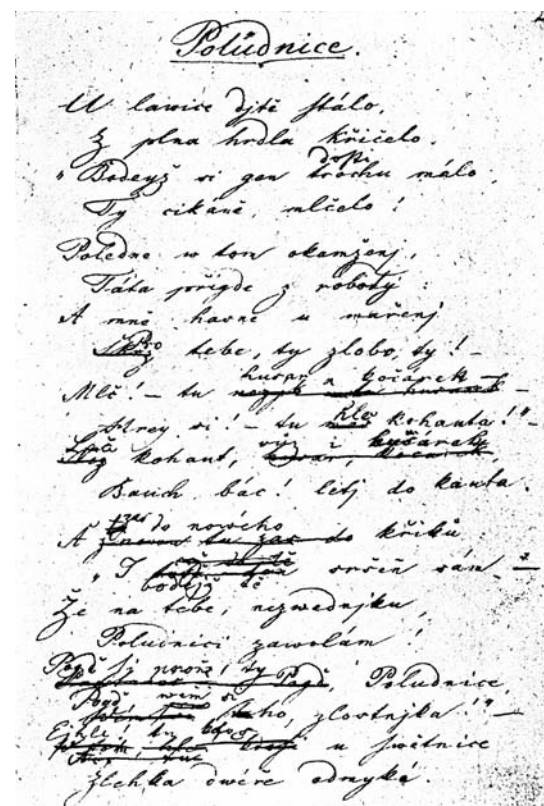 Polůdnice.
U lawice djtě stálo,
Z plna hrdla křičelo.
dosti
„Bodeyž si gen trochu málo,
Ty cikáně, mlčelo!
Poledne w tom okamženj,
Táta přigde z roboty:
A mně hasne u wařenj
Pro
tebe, ty zlobo, ty! –
husar a kočárek –
Mlč! – tu
Hrey si! – tu kohauta!" –
kohaut,
Bauch bác! letj do kauta.
zas do nowého
A křiku
„I sršeň sám –
bodeyž tě
Že na tebe, nezwednjku,
Poludnici zawolám!
Pogď si proň, ty
Pogď, Poludnice
Pogď, wem si
ho, zlostnjka!" –
u swětnice
Zlehka dwéře odmyká.